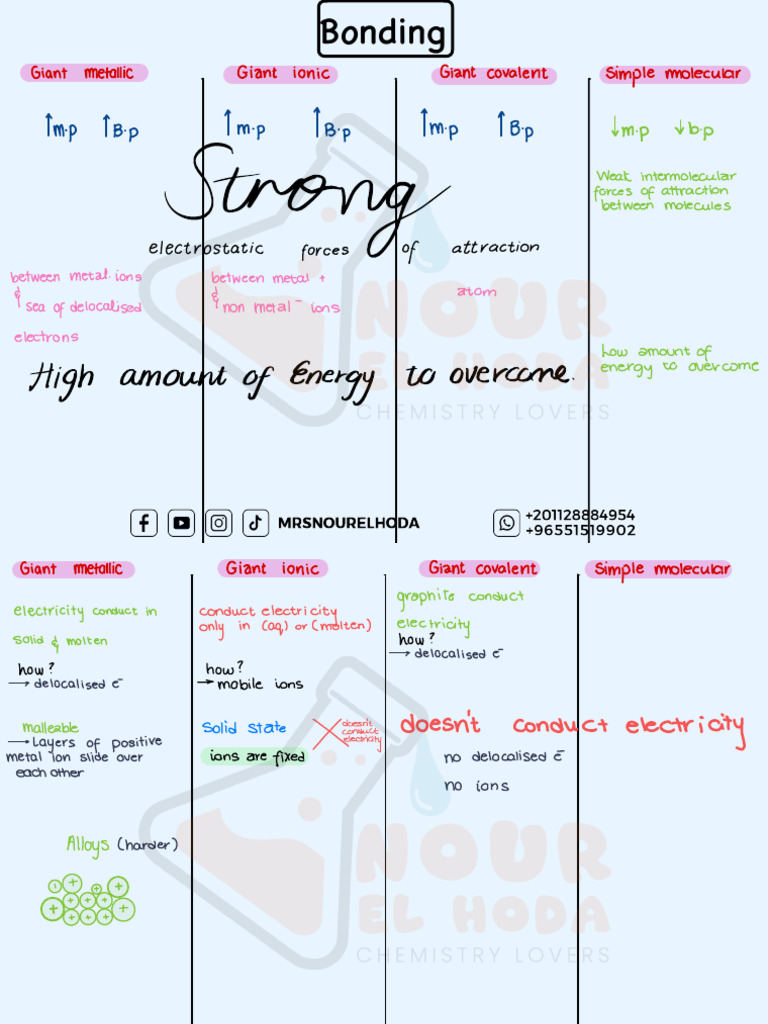 Bonding
Giant metallic
Giant ionic
Giant covalent
Simple molecular
↑m.p ↑B.p
↑m.p ↑B.p
↑m.p ↑B.p
↓m.p ↓b.p
Weak intermolecular
forces of attraction
between molecules
Strong
electrostatic forces of attraction
between metal ions
& sea of delocalised
electrons
between metal +
& non metal⁻ ions
atom
High amount of Energy to overcome.
low amount of
energy to overcome
NOUR
EL HODA
CHEMISTRY LOVERS
MRSNOURELHODA
+201128884954
+96551519902
Giant metallic
Giant ionic
Giant covalent
Simple molecular
electricity conduct in
solid & molten
how?
→ delocalised e⁻
malleable
→ Layers of positive
metal ion slide over
each other
Alloys (harder)
+ + + + + + + + + + + +
conduct electricity
only in (aq) or (molten)
how?
→ mobile ions
Solid state
doesn't
conduct
electricity
ions are fixed
graphite conduct
electricity
how?
→ delocalised e⁻
doesn't conduct electricity
no delocalised e⁻
no ions
NOUR
EL HODA
CHEMISTRY LOVERS